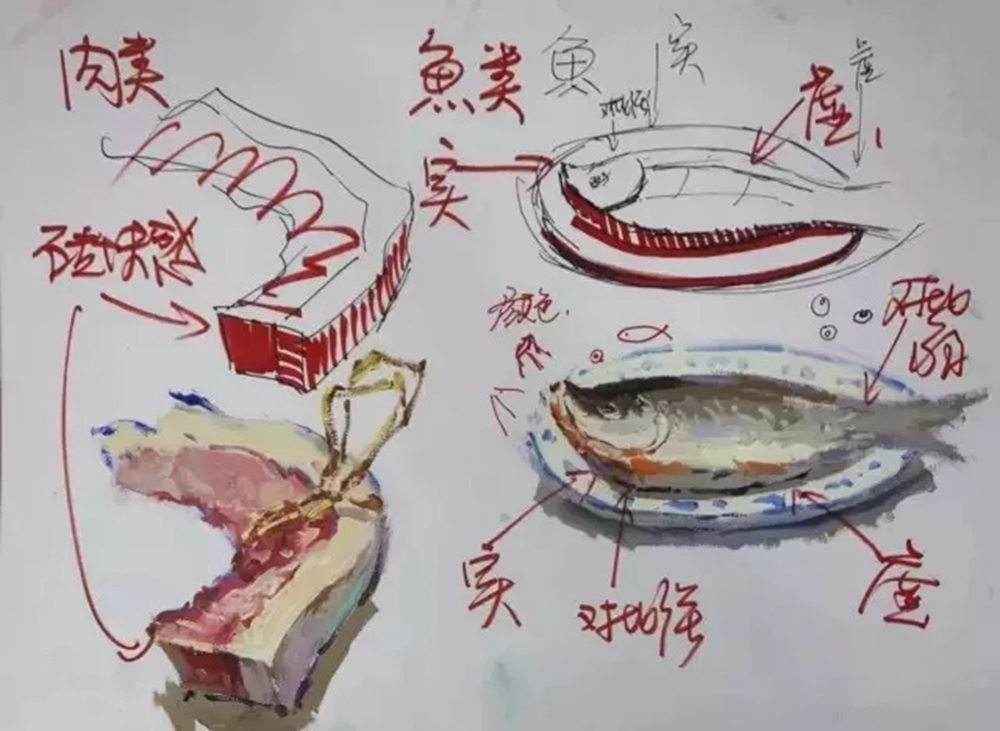 肉类
魚类
魚
实
虚
对比强
虚
实
体块感
颜色
对比弱
实
对比强
虚